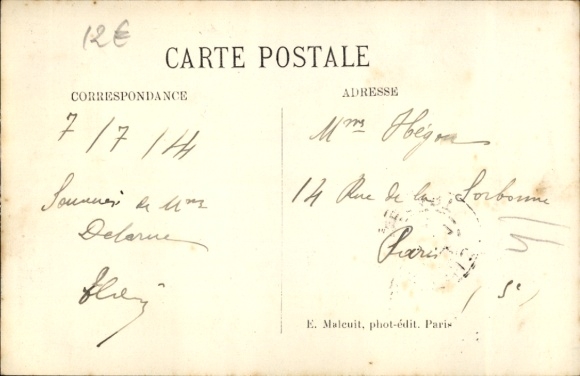 12€
CARTE POSTALE
CORRESPONDANCE
ADRESSE
7/7/14
de Mme
Delarue
Mme
14 Rue de la Sorbonne
Paris
(5e)
E. Malcuit, phot-édit. Paris